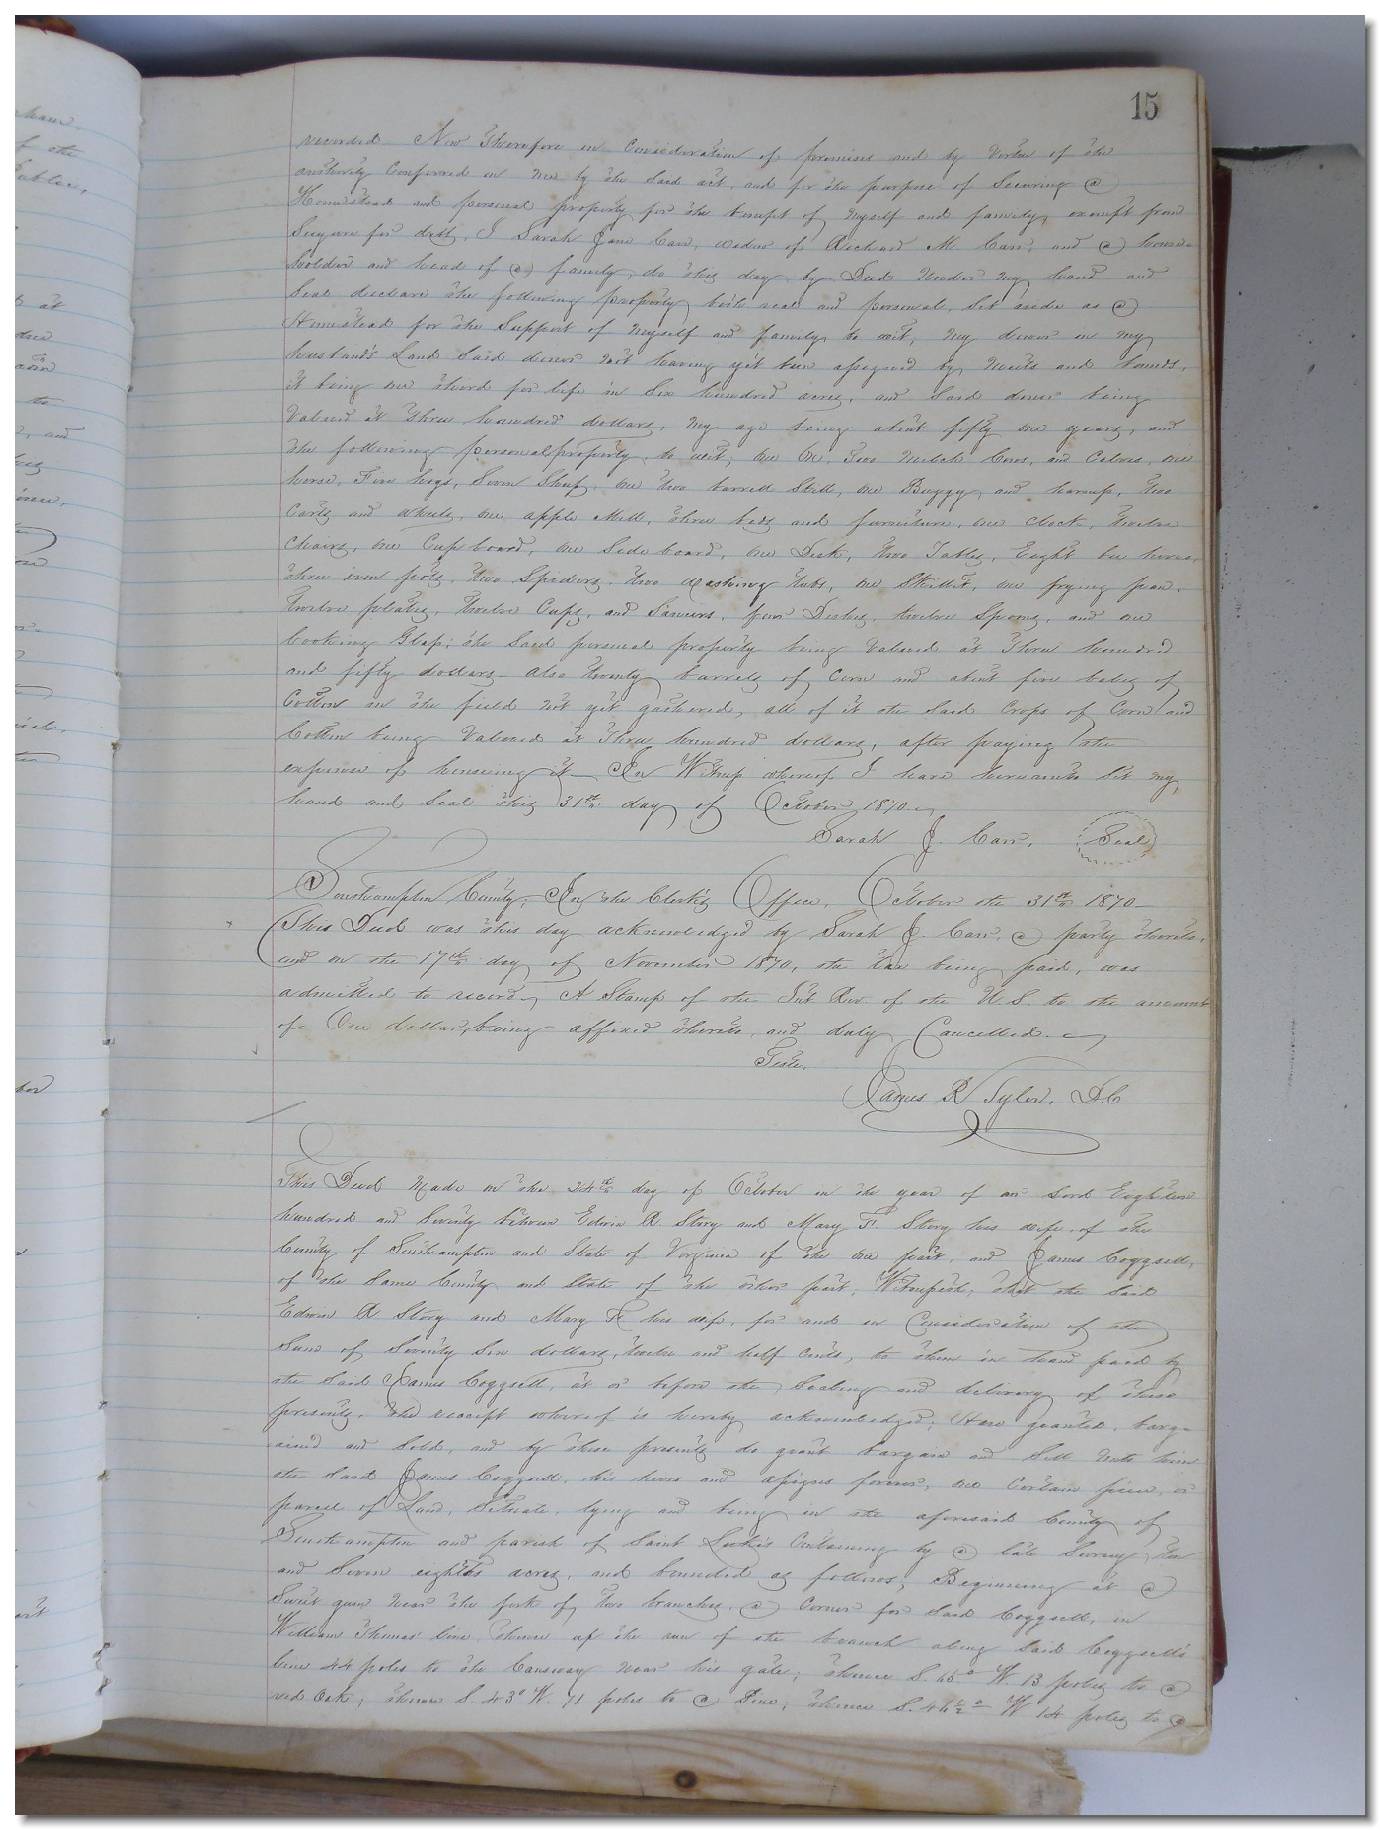 15
recorded Now Therefore in Consideration of premises and by Virtue of the
authority Conferred on me by the Said act, and for the purpose of Securing a
Homestead and personal property for the benefit of Myself and family, exempt from
Seizure for debt, I Sarah Jane Carr, widow of Richard M. Carr, and a house-
holder and head of a family, do this day by Deed Under my hand and
Seal declare the following property both real and personal, Set aside as a
Homestead for the Support of Myself and family, to wit, my dower in my
husband's Land Said dower not having yet been assigned by Meets and bounds,
it being one third for life in Six hundred acres, and Said dower being
Valued at Three hundred dollars, my age being about fifty one years, and
the following personal property, to wit; one Ox, Two Milch Cows, and Calves, one
horse, Five hogs, Seven Sheep, one two barrell Still, one Buggy, and harness, two
Carts and wheels, one apple Mill, three beds and furniture, one clock, twelve
Chairs, one Cupboard, one Sideboard, one Desk, two Tables, Eight bee hives,
three iron pots, two Spiders, two washing tubs, one Skillet, one frying pan,
twelve plates, twelve Cups, and Saucers, four Dishes, twelve Spoons, and one
Cooking Glass; the Said personal property being Valued at Three hundred
and fifty dollars also twenty barrels of Corn and about five bales of
Cotton in the field not yet gathered, all of it the Said Crops of Corn and
Cotton being Valued at Three hundred dollars, after paying the
expenses of housing it In Witness whereof I have hereunto Set my
hand and Seal this 31st day of October 1870
Sarah J. Carr. Seal
Southampton County, In the Clerk's Office, October the 31st 1870
This Deed was this day acknowledged by Sarah J. Carr, a party thereto,
and on the 17th day of November 1870, the tax being paid, was
admitted to record, A Stamp of the Int Rev. of the U.S. to the amount
of One dollar, being affixed thereto and duly Cancelled.
Teste,
James R Tyler. D.C
This Deed Made on the 24th day of October in the year of our Lord Eighteen
hundred and Seventy between Edwin R. Story and Mary F. Story his wife, of the
County of Southampton and State of Virginia of the one part, and James Coggsell,
of the Same County and State of the other part, Witnesseth, that the Said
Edwin R Story and Mary F his wife, for and in Consideration of the
Sum of Seventy Six dollars, twelve and half cents, to them in hand paid by
the Said James Coggsell, at or before the Sealing and delivery of these
presents, the receipt whereof is hereby acknowledged; Have granted, barga-
ained and Sold, and by these presents do grant bargain and Sell unto him
the Said James Coggsell, his heirs and assigns forever, one Certain piece, or
parcel of Land, Situate, lying and being in the aforesaid County of
Southampton and parish of Saint Luke's Containing by a late Survey ten
and Seven eighths acres, and bounded as follows; Beginning at a
Sweet gum near the fork of two branches, a Corner for Said Coggsell, in
William Thomas' line thence up the run of the branch along Said Coggsell's
line 44 poles to the Causeway near his gate; thence S. 65° W 13 poles to a
red Oak; thence S. 43° W. 71 poles to a Pine; thence S. 46½° W 14 poles to a